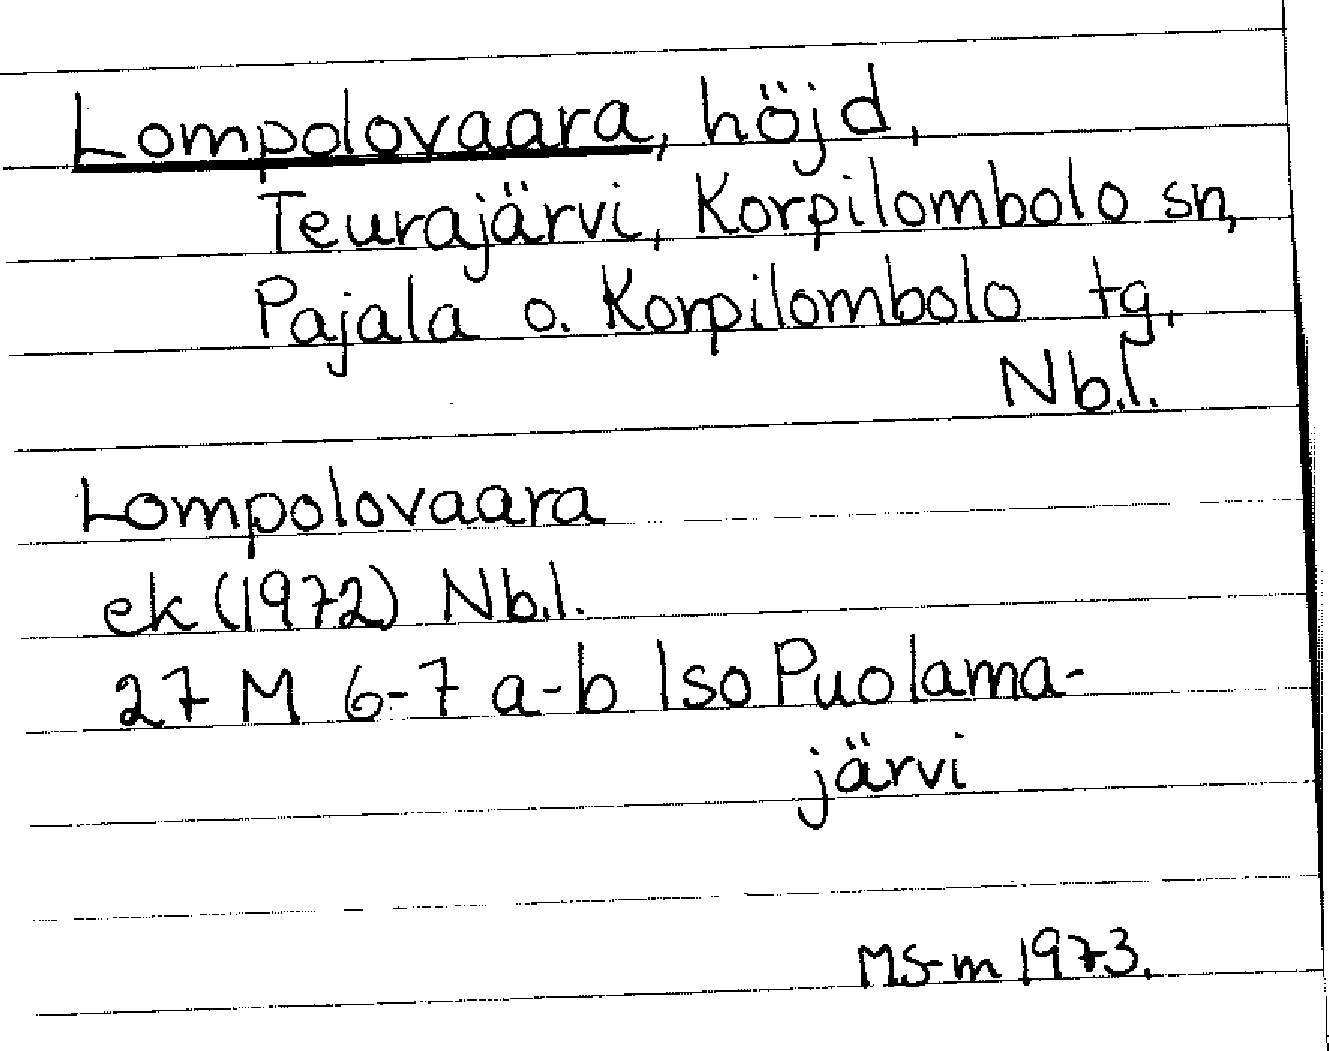 Lompolovaara, höjd,
Teurajärvi, Korpilombolo sn,
Pajala o. Korpilombolo tg,
Nb.l.
Lompolovaara
ek (1972) Nb.l.
27 M 6-7 a-b Iso Puolama-
järvi
MS-m 1973.